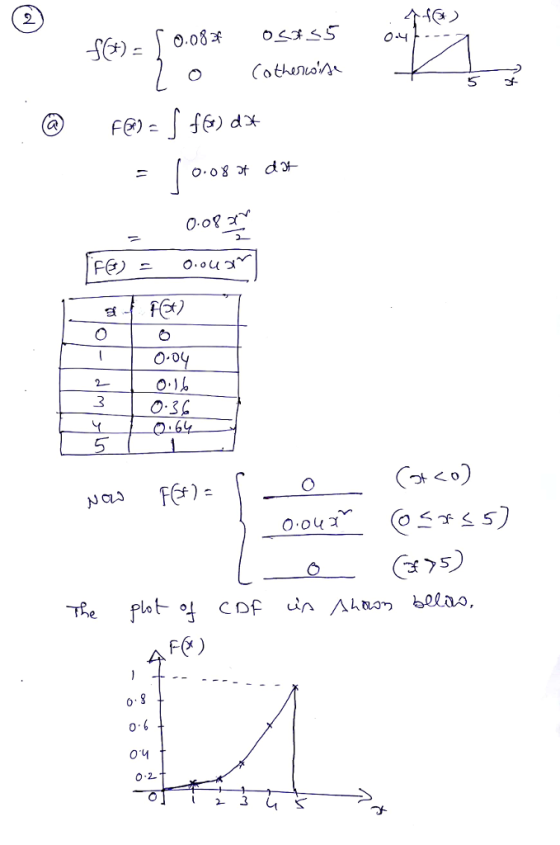 2
f(x)
f(x) = { 0.08x 0≤x≤5
0 (otherwise
0.4
5 x
a F(x) = ∫ f(x) dx
= ∫ 0.08 x dx
= 0.08 x²/2
F(x) = 0.04x²
x F(x)
0 0
1 0.04
2 0.16
3 0.36
4 0.64
5 1
Now F(x) = { 0 (x<0)
0.04x² (0≤x≤5)
0 (x>5)
The plot of CDF is shown below.
F(x)
1
0.8
0.6
0.4
0.2
0 1 2 3 4 5 x